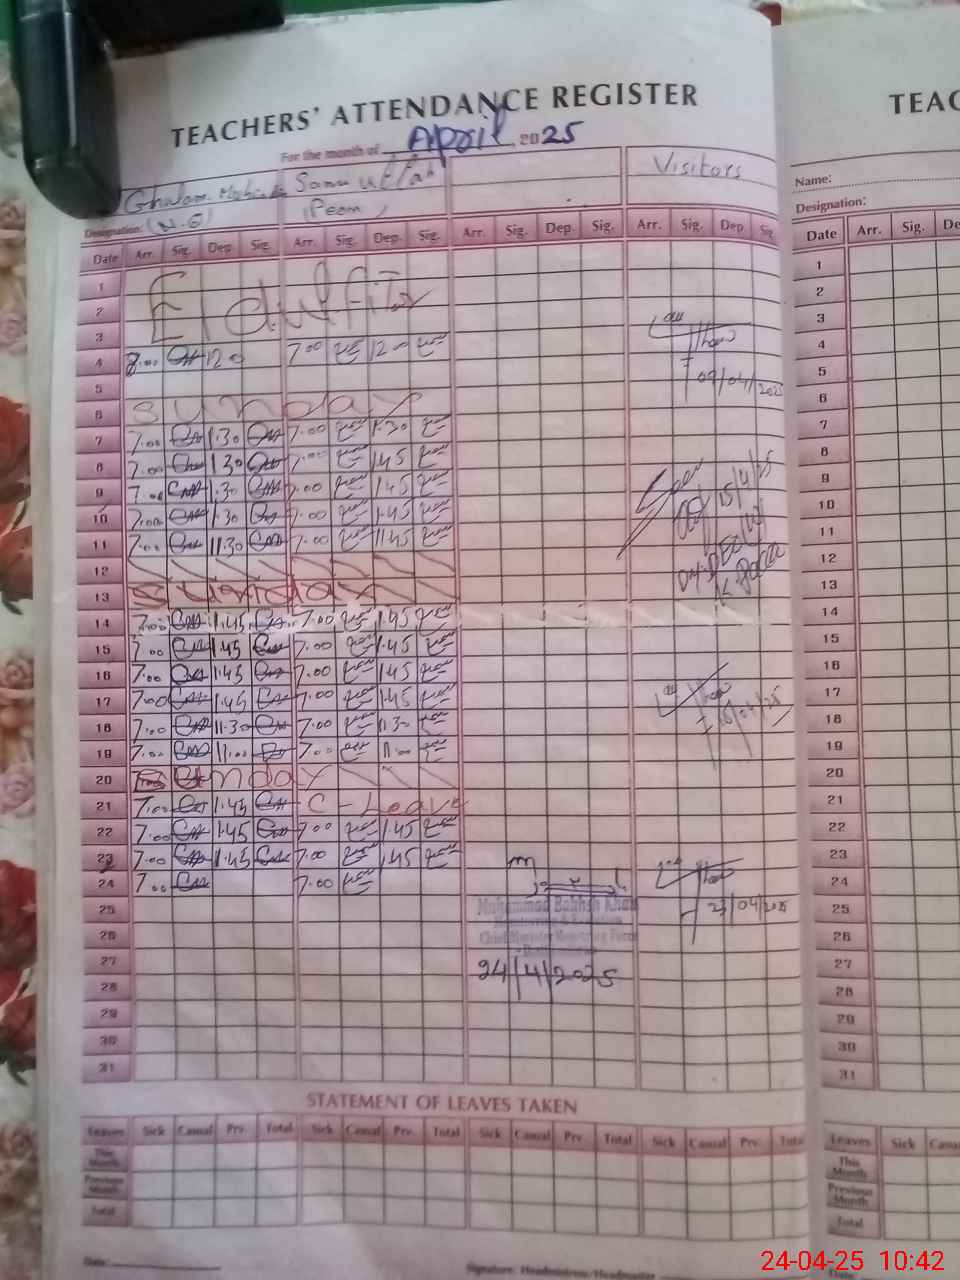 TEACHERS' ATTENDANCE REGISTER
For the month of April 2025
Ghulam Samiullah Visitors
Designation: (N.Q) (Peon)
Date Arr. Sig. Dep. Sig. Arr. Sig. Dep. Sig. Arr. Sig. Dep. Sig. Arr. Sig. Dep Sig.
1
2 Eidulfitr
3
4 8.00 12.0 7.00 12.0
5 09/04/2025
6 Sunday
7 7.00 1.30 7.00 1.30
8 7.00 1.30 7.00 1.45
9 7.00 1.30 7.00 1.45 15/4/25
10 7.00 1.30 7.00 1.45
11 7.00 11.30 7.00 11.45
12
13 Sunday
14 7.00 1.45 7.00 1.45
15 7.00 1.45 7.00 1.45
16 7.00 1.45 7.00 1.45
17 7.00 1.45 7.00 1.45
18 7.00 11.30 7.00 11.30
19 7.00 11.00 7.00 11.00
20 Sunday
21 7.00 1.45 C-Leave
22 7.00 1.45 7.00 1.45
23 7.00 1.45 7.00 1.45
24 7.00 7.00
25 Muhammad Bakhsh Khan 23/04/2025
26 Monitoring & Evaluation
Chief Minister Monitoring Force
27 24/4/2025
28
29
30
31
STATEMENT OF LEAVES TAKEN
Leaves Sick Casual Prv. Total Sick Casual Prv. Total Sick Casual Prv. Total Sick Casual Prv. Total
This Month
Previous Month
Total
Date:
Signature: Headmistress/Headmaster
TEAC
Name:
Designation:
Date Arr. Sig. De
1
2
3
4
5
6
7
8
9
10
11
12
13
14
15
16
17
18
19
20
21
22
23
24
25
26
27
28
29
30
31
Leaves Sick Casua
This Month
Previous Month
Total
Date:
24-04-25 10:42